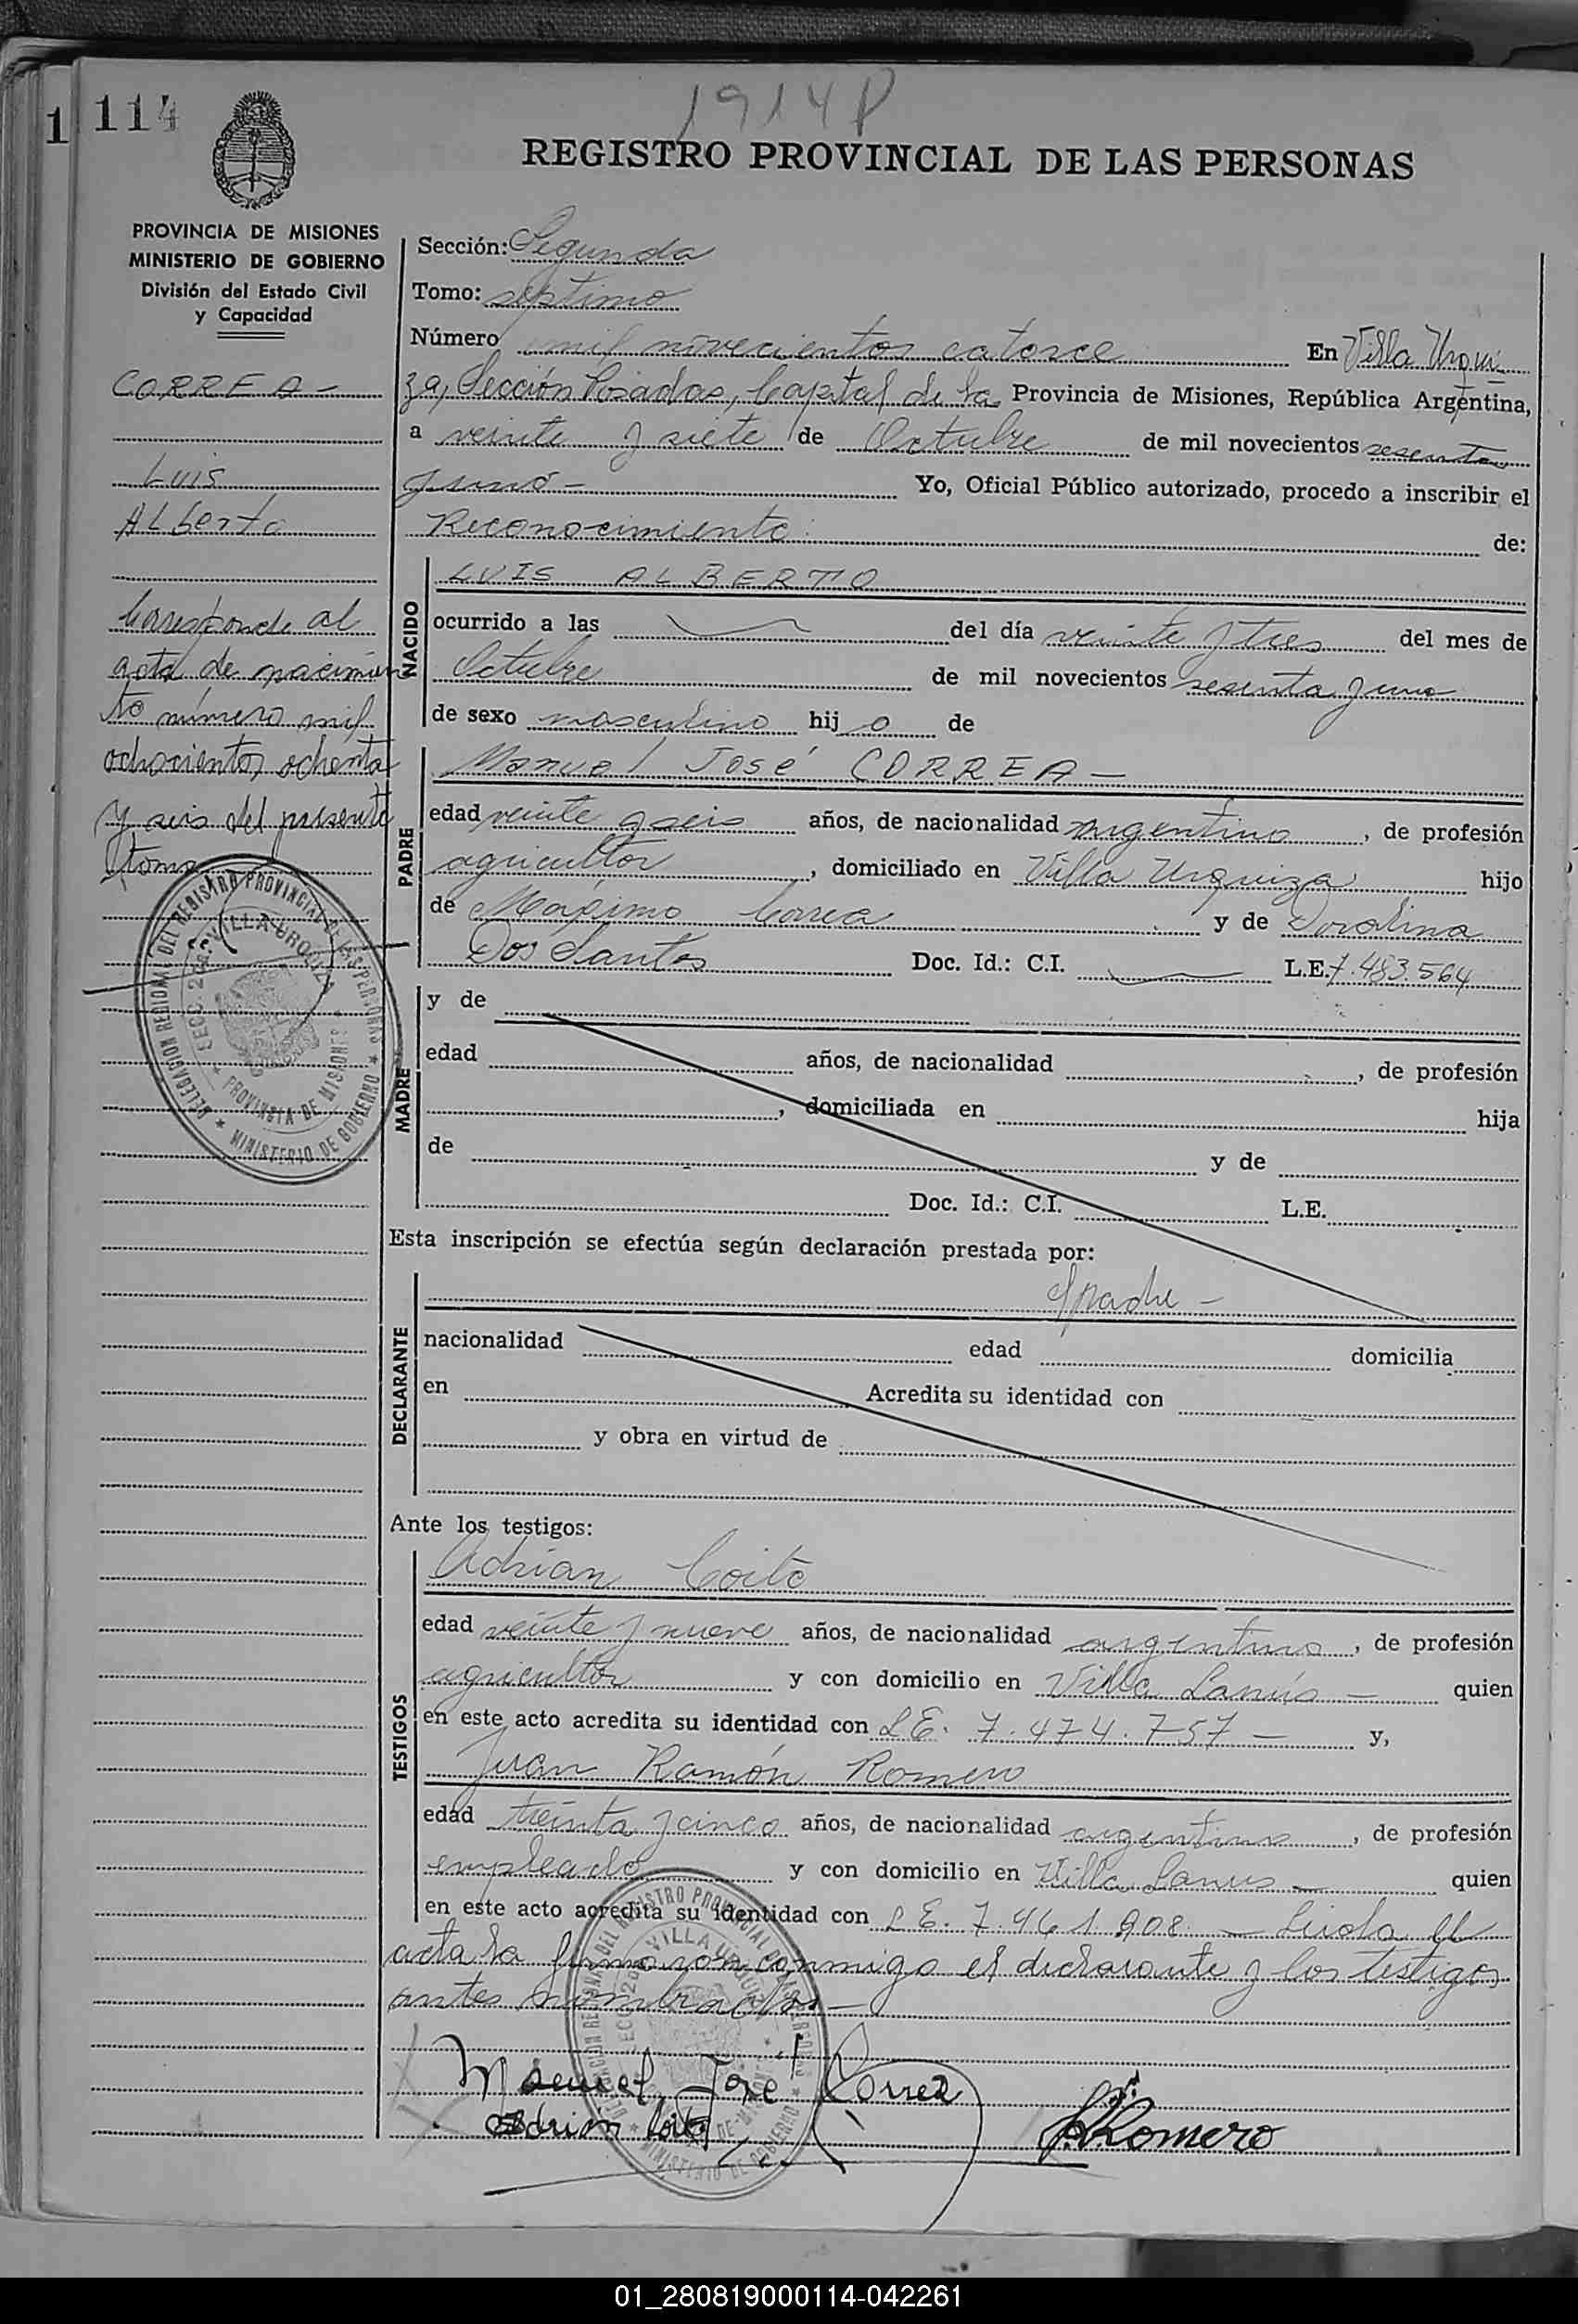 1914 P
1 114
REGISTRO PROVINCIAL DE LAS PERSONAS
PROVINCIA DE MISIONES
MINISTERIO DE GOBIERNO
División del Estado Civil
y Capacidad
CORREA -
Luis
Alberto
Corresponde al
acta de nacimien
to número mil
ochocientos ochenta
y seis del presente
tomo
DELEGACION REGIONAL DEL REGISTRO PROVINCIAL DE LAS PERSONAS * MINISTERIO DE GOBIERNO *
SECC. 2da. VILLA URQUIZA * PROVINCIA DE MISIONES *
Sección: Segunda
Tomo: septimo
Número mil novecientos catorce En Villa Urqui
za, Sección Posadas, Capital de la Provincia de Misiones, República Argentina,
a veinte y siete de Octubre de mil novecientos sesenta
y uno - Yo, Oficial Público autorizado, procedo a inscribir el
Reconocimiento de:
NACIDO
LUIS ALBERTO
ocurrido a las del día veinte y tres del mes de
Octubre de mil novecientos sesenta y uno
de sexo masculino hijo de
PADRE
Manuel José CORREA -
edad veinte y seis años, de nacionalidad argentino, de profesión
agricultor, domiciliado en Villa Urquiza hijo
de Máximo Correa y de Doralina
Dos Santos Doc. Id.: C.I. L.E. 7.483.564
MADRE
y de
edad años, de nacionalidad , de profesión
, domiciliada en hija
de y de
Doc. Id.: C.I. L.E.
Esta inscripción se efectúa según declaración prestada por:
DECLARANTE
El padre -
nacionalidad edad domicilia
en Acredita su identidad con
y obra en virtud de
Ante los testigos:
TESTIGOS
Adrian Coito
edad veinte y nueve años, de nacionalidad argentino, de profesión
agricultor y con domicilio en Villa Lanús - quien
en este acto acredita su identidad con L.E. 7.474.757 - y,
Juan Ramón Romero
edad treinta y cinco años, de nacionalidad argentino, de profesión
empleado y con domicilio en Villa Lanus - quien
en este acto acredita su identidad con L.E. 7.461.908 - Leida el
acta la firmaron conmigo el declarante y los testigos
antes nombrados -
DELEGACION REGIONAL DEL REGISTRO PROVINCIAL DE LAS PERSONAS * MINISTERIO DE GOBIERNO *
SECC. 2da. VILLA URQUIZA
Manuel José Correa
Adrian Coito
J.R. Romero
01_280819000114-042261